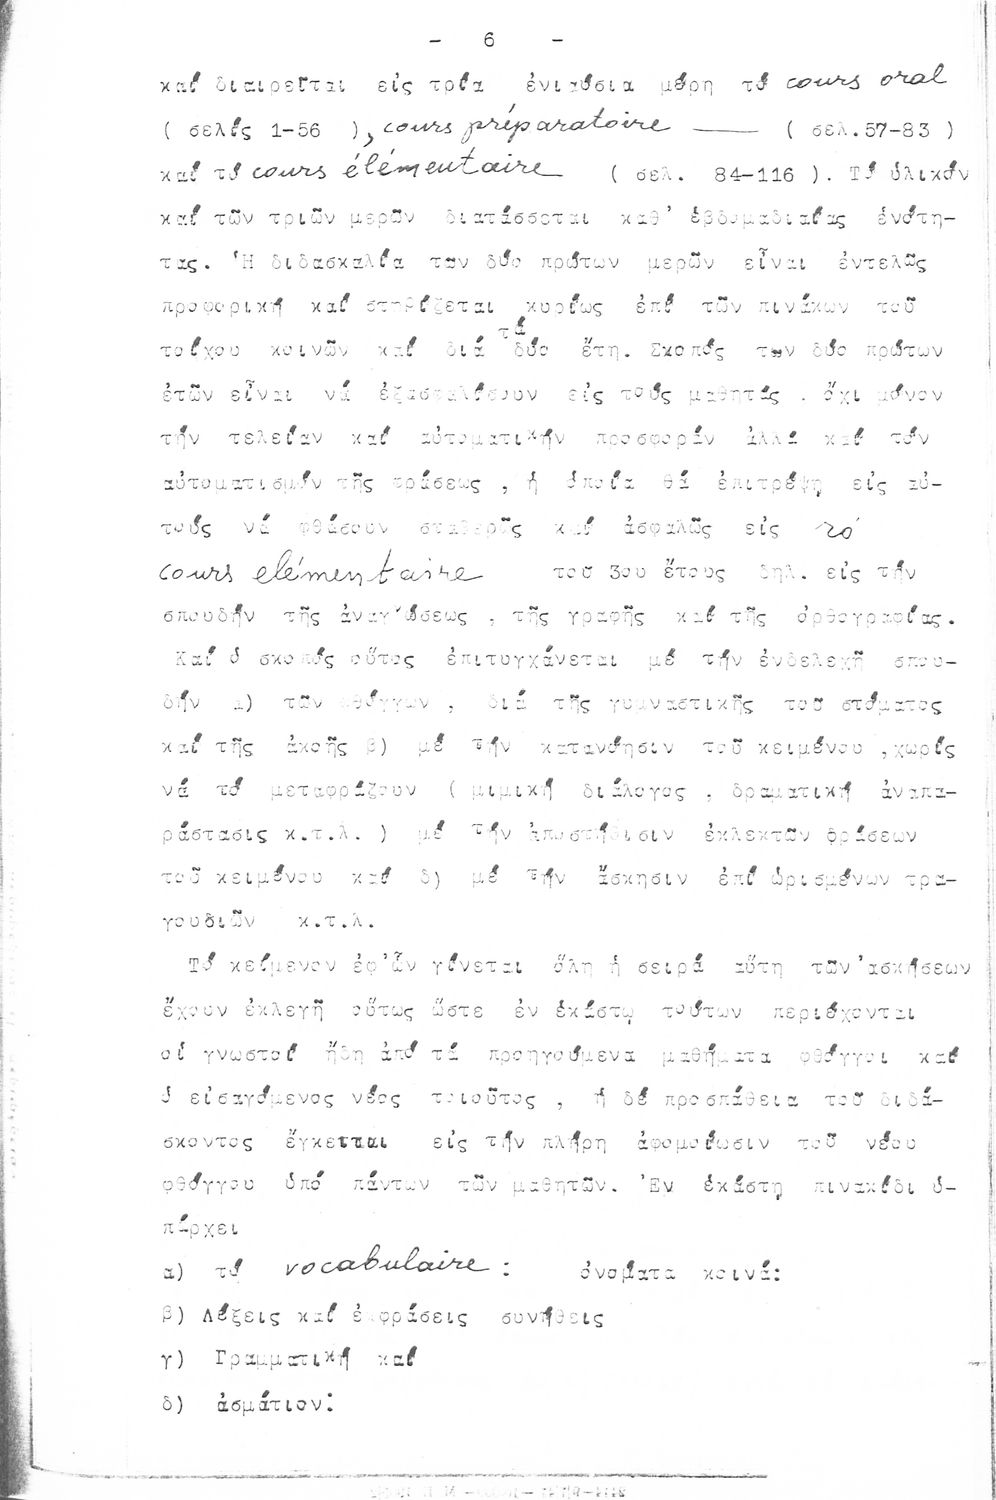 - 6 -
καί διαιρεῖται εἰς τρία ἐνιαύσια μέρη τό cours oral
( σελίς 1-56 ), cours préparatoire —— ( σελ.57-83 )
καί τό cours élémentaire ( σελ. 84-116 ). Τό ὑλικόν
καί τῶν τριῶν μερῶν διατάσσεται καθ' ἑβδομαδιαίας ἑνότη-
τας. Ἡ διδασκαλία των δύο πρώτων μερῶν εἶναι ἐντελῶς
προφορική καί στηρίζεται κυρίως ἐπί τῶν πινάκων τοῦ
τοίχου κοινῶν καί διά τά δύο ἔτη. Σκοπός των δύο πρώτων
ἐτῶν εἶναι νά ἐξασφαλίσουν εἰς τούς μαθητάς . ὄχι μόνον
τήν τελείαν καί αὐτοματικήν προσφοράν ἀλλά καί τόν
αὐτοματισμόν τῆς φράσεως , ἡ ὁποία θά ἐπιτρέψῃ εἰς αὐ-
τούς νά φθάσουν σταθερῶς καί ἀσφαλῶς εἰς τό
cours elémentaire του 3ου ἔτους δηλ. εἰς τήν
σπουδήν τῆς ἀναγνώσεως , τῆς γραφῆς καί τῆς ὀρθογραφίας.
Καί ὁ σκοπός οὗτος ἐπιτυγχάνεται μέ τήν ἐνδελεχῆ σπου-
δήν α) τῶν φθόγγων , διά τῆς γυμναστικῆς τοῦ στόματος
καί τῆς ἀκοῆς β) μέ τήν κατανόησιν τοῦ κειμένου ,χωρίς
νά τό μεταφράζουν ( μιμική διάλογος , δραματική ἀναπα-
ράστασις κ.τ.λ. ) μέ τήν ἀποστήθισιν ἐκλεκτῶν φράσεων
τοῦ κειμένου καί δ) μέ τήν ἄσκησιν ἐπί ὡρισμένων τρα-
γουδιῶν κ.τ.λ.
Τό κείμενον ἐφ'ὧν γίνεται ὅλη ἡ σειρά αὕτη τῶν ἀσκήσεων
ἔχουν ἐκλεγῆ οὕτως ὥστε ἐν ἑκάστῳ τούτων περιέχονται
οἱ γνωστοί ἤδη ἀπό τά προηγούμενα μαθήματα φθόγγοι καί
ὁ εἰσαγόμενος νέος τοιοῦτος , ἡ δέ προσπάθεια τοῦ διδά-
σκοντος ἔγκειται εἰς τήν πλήρη ἀφομοίωσιν τοῦ νέου
φθόγγου ὑπό πάντων τῶν μαθητῶν. Ἐν ἑκάστῃ πινακίδι ὑ-
πάρχει
α) τό vocabulaire : ὀνόματα κοινά:
β) Λέξεις καί ἐκφράσεις συνήθεις
γ) Γραμματική καί
δ) ἀσμάτιον: